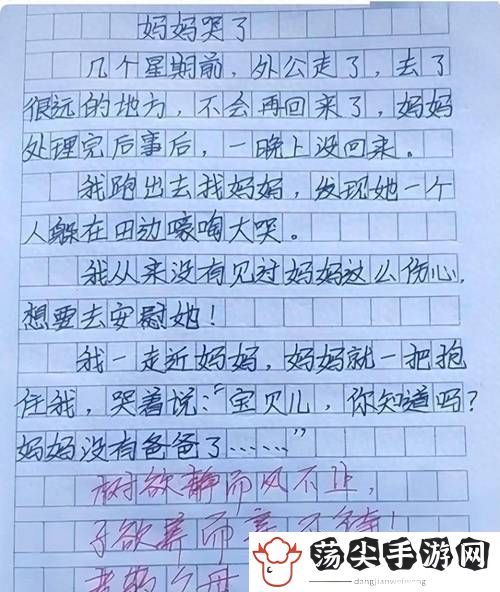 妈妈哭了
几个星期前，外公走了，去了
很远的地方，不会再回来了，妈妈
处理完后事后，一晚上没回来。
我跑出去找妈妈，发现她一个
人躲在田边嚎啕大哭。
我从来没有见过妈妈这么伤心，
想要去安慰她！
我一走近妈妈，妈妈就一把抱
住我，哭着说：“宝贝儿，你知道吗？
妈妈没有爸爸了……”
树欲静而风不止，
子欲养而亲不待！
荡尖手游网
dangjianweiwang